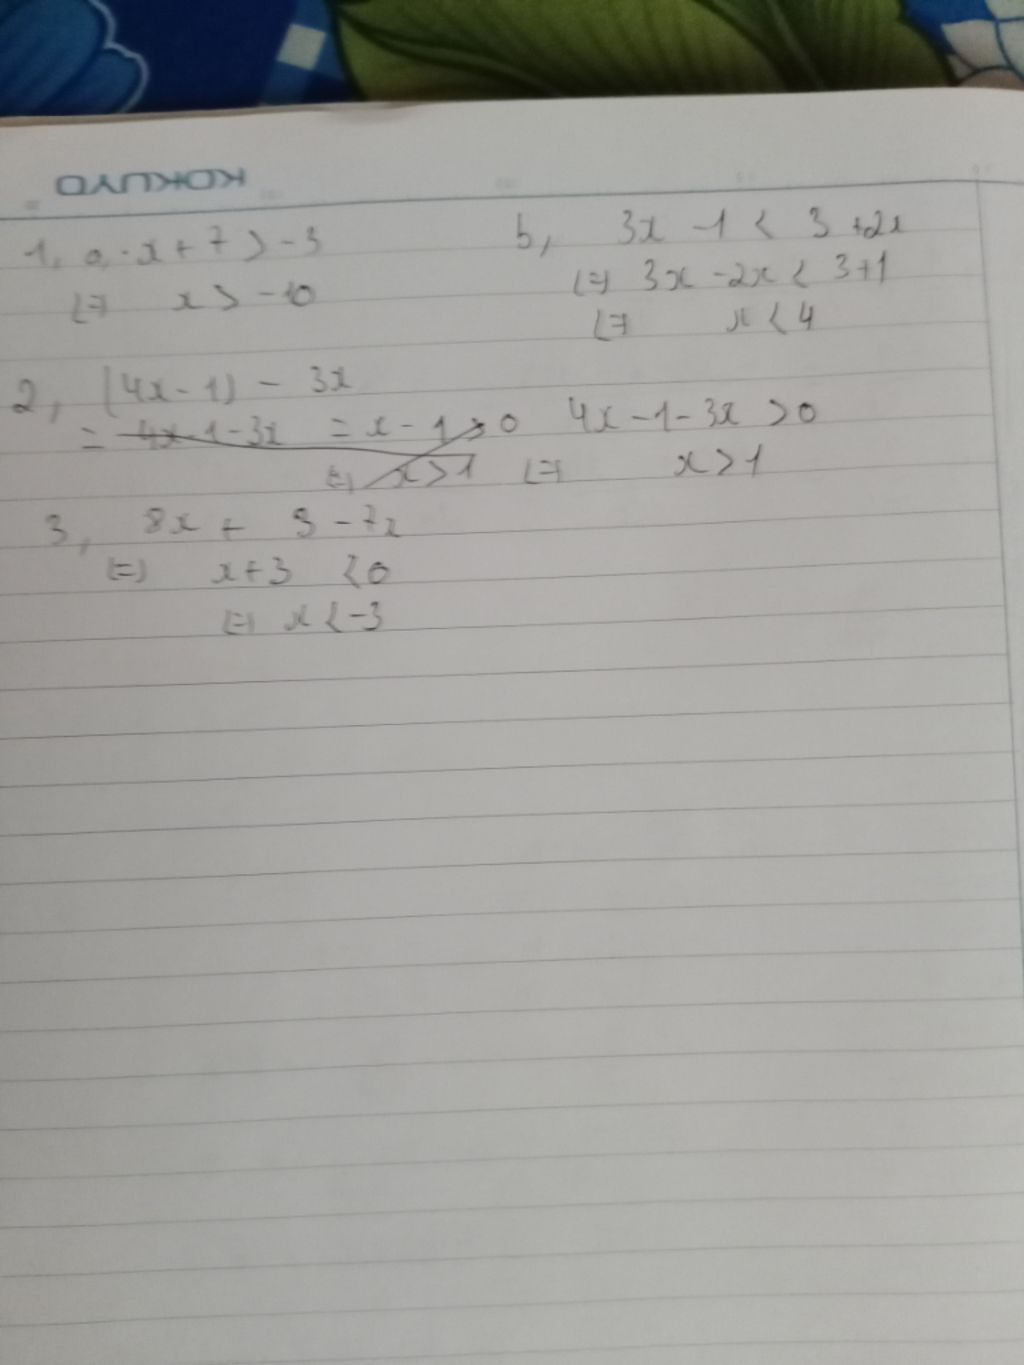 KOKUYO
1, a, x + 7 > -3
⇔ x > -10
b, 3x - 1 < 3 + 2x
⇔ 3x - 2x < 3 + 1
⇔ x < 4
2, (4x - 1) - 3x
= 4x - 1 - 3x = x - 1 > 0 4x - 1 - 3x > 0
⇔ x > 1 ⇔ x > 1
3, 8x + 3 - 7x
⇔ x + 3 < 0
⇔ x < -3